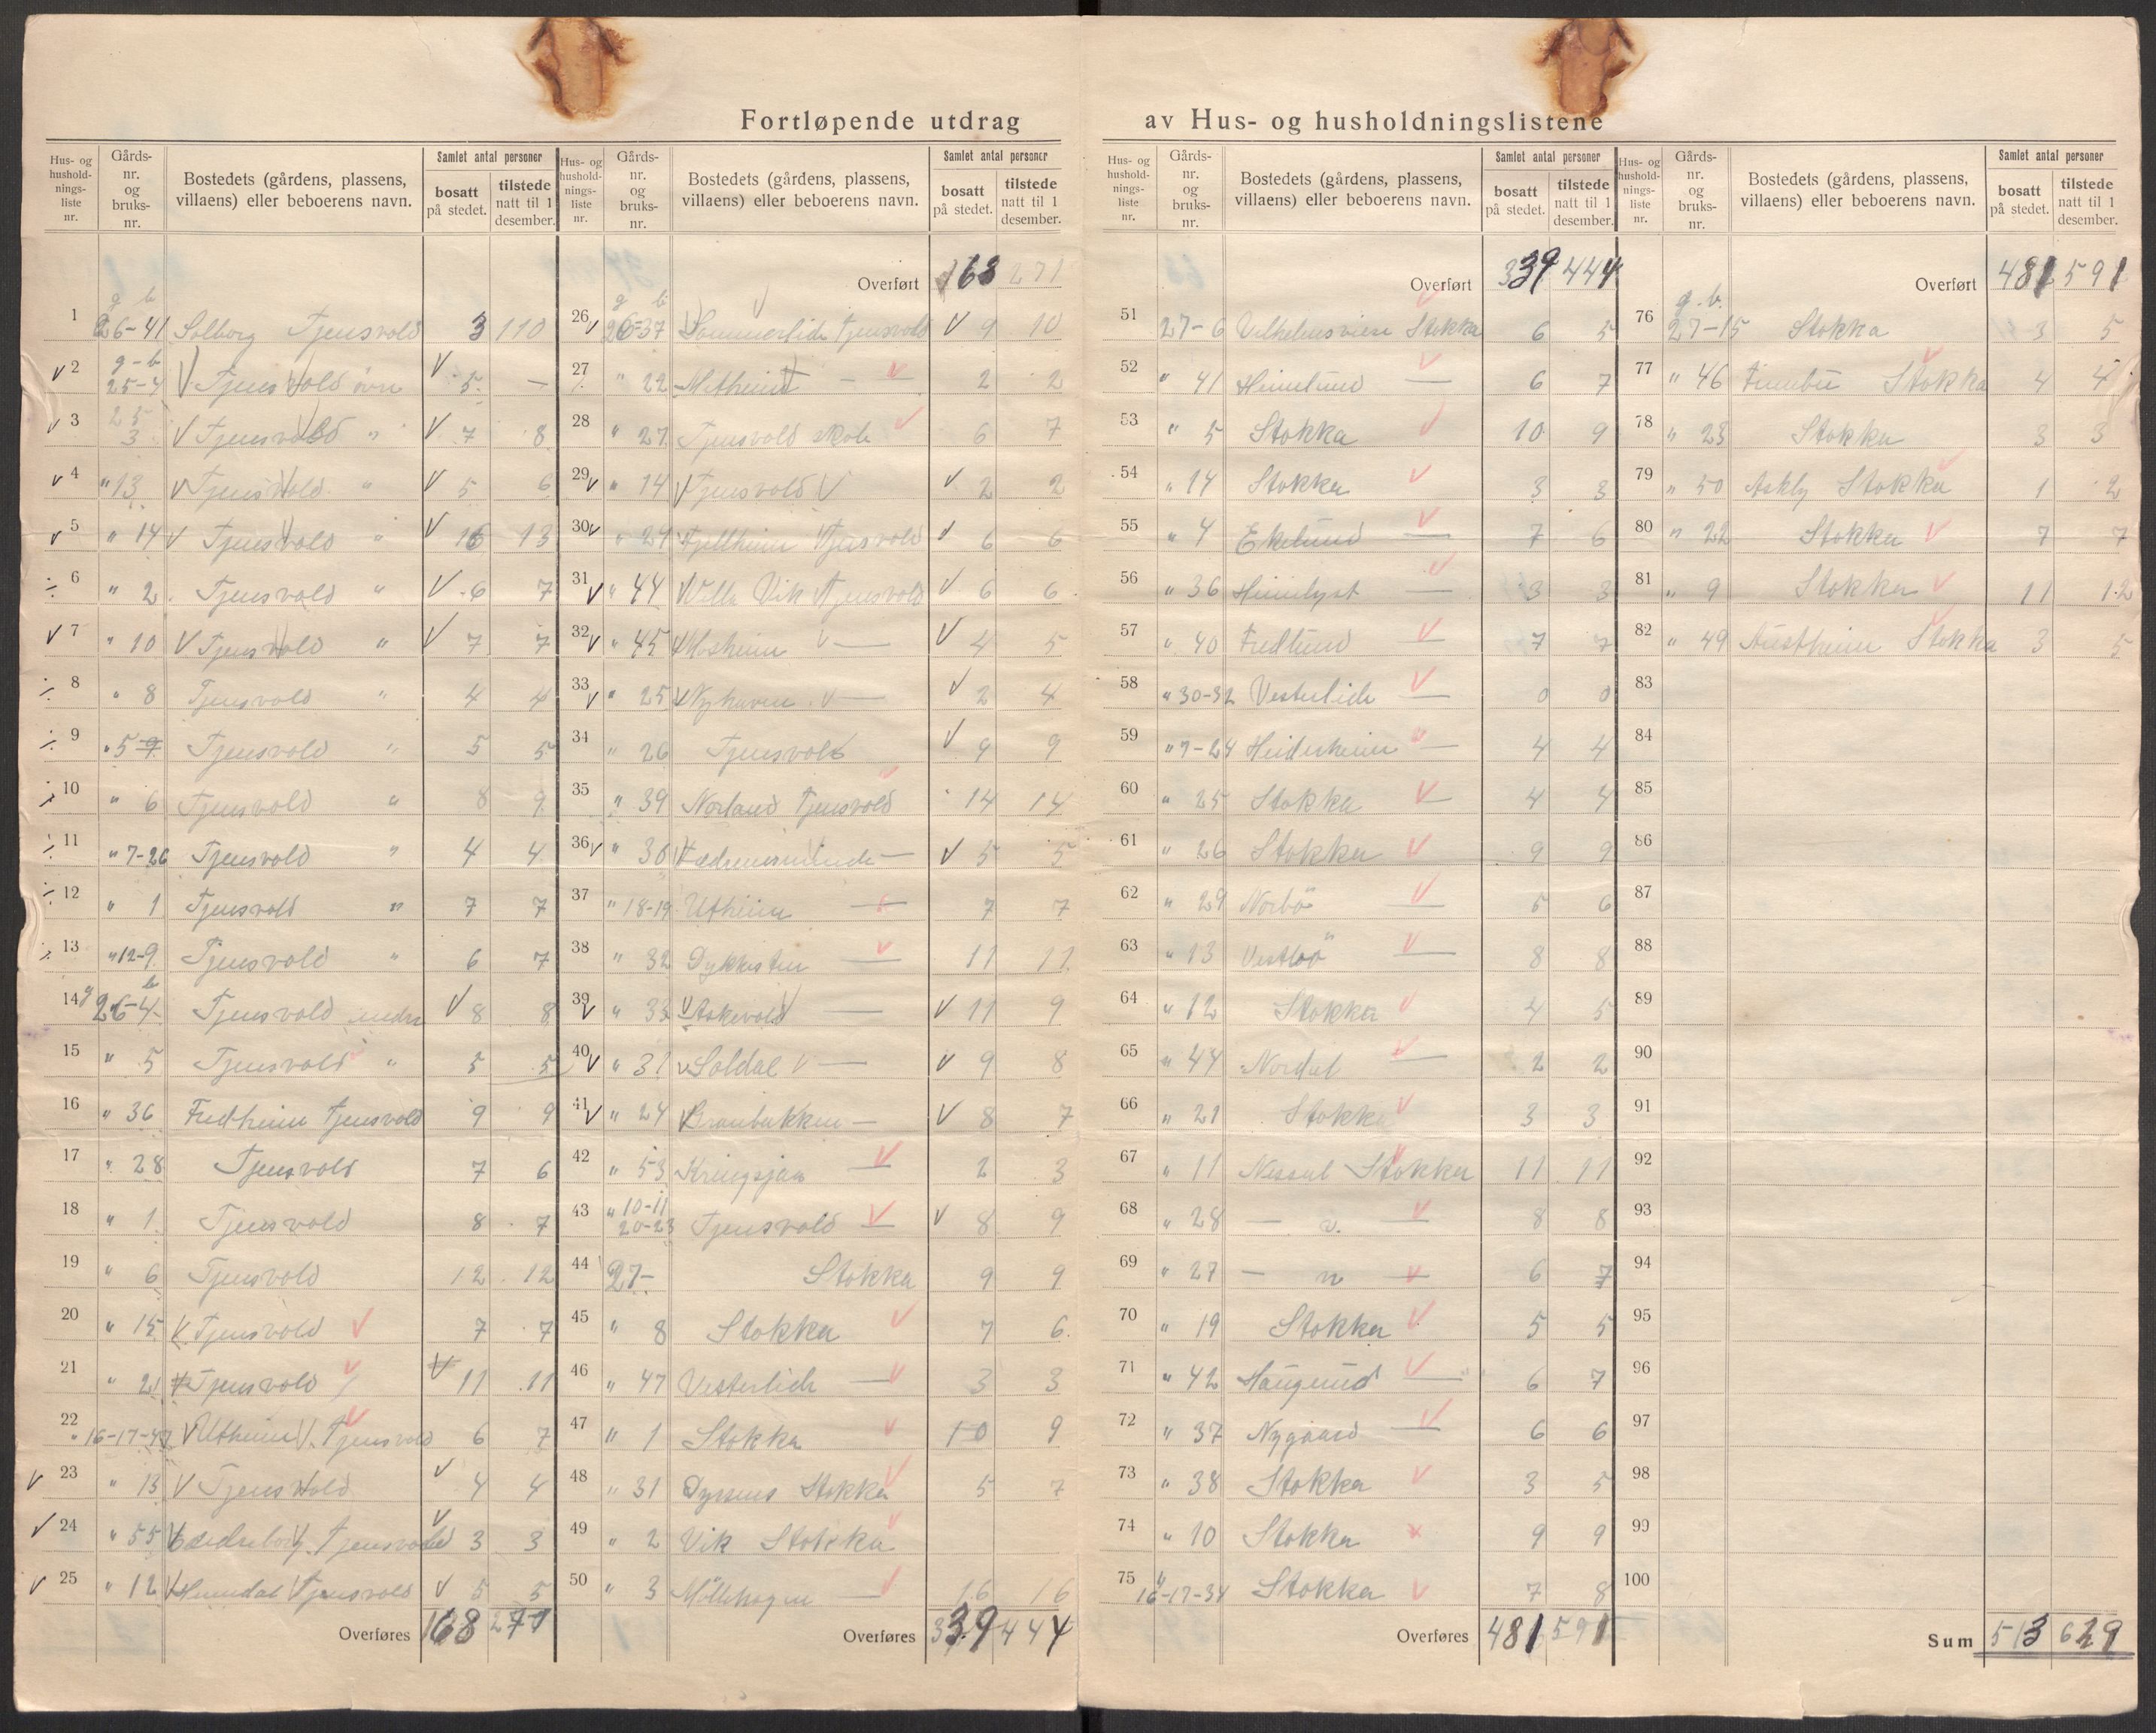 Fortløpende utdrag av Hus- og husholdningslistene
Hus- og husholdningsliste nr. | Gårdsnr. og bruksnr. | Bostedets (gårdens, plassens, villaens) eller beboerens navn. | Samlet antal personer bosatt på stedet. | tilstede natt til 1 desember.
g b
1 26-41 Solborg Tjensvold 3 110
g-b
2 25-4 Tjensvold övre 5 —
3 25 3 Tjensvold " 7 8
4 " 13 Tjensvold " 5 6
5 " 14 Tjensvold " 16 13
6 " 2 Tjensvold " 6 7
7 " 10 Tjensvold " 7 7
8 " 8 Tjensvold " 4 4
9 " 5 Tjensvold " 5 5
10 " 6 Tjensvold " 8 9
11 " 7-26 Tjensvold " 4 4
12 " 1 Tjensvold " 7 7
13 " 12-9 Tjensvold " 6 7
14 g 26-4 b Tjensvold nedre 8 8
15 " 5 Tjensvold " 5 5
16 " 36 Fredheim Tjensvold 9 9
17 " 28 Tjensvold 7 6
18 " 1 Tjensvold 8 7
19 " 6 Tjensvold 12 12
20 " 15 Tjensvold 7 7
21 " 21 Tjensvold 11 11
22 " 16-17-47 Utheim Tjensvold 6 7
23 " 13 Tjensvold 4 4
24 " 55 Tjensvold 3 3
25 " 12 Tjensvold 5 5
Overføres 168 271
Hus- og husholdningsliste nr. | Gårdsnr. og bruksnr. | Bostedets (gårdens, plassens, villaens) eller beboerens navn. | Samlet antal personer bosatt på stedet. | tilstede natt til 1 desember.
Overført 168 271
g b
26 26-37 Sommerlide Tjensvold 9 10
27 " 22 — 2 2
28 " 27 Tjensvold skole 6 7
29 " 14 Tjensvold 2 2
30 " 29 Fjellheim Tjensvold 6 6
31 " 44 Villa Vik Tjensvold 6 6
32 " 45 Moheim — 4 5
33 " 25 Nyhaven — 2 4
34 " 26 Tjensvold 9 9
35 " 39 Norland Tjensvold 14 14
36 " 30 Fædrenesminde — 5 5
37 " 18-19 Utheim — 7 7
38 " 32 — 11 11
39 " 33 Stokevold — 11 9
40 " 31 Soldal — 9 8
41 " 24 Granbakken — 8 7
42 " 53 Kringsjaa — 2 3
43 " 10-11 20-23 Tjensvold — 8 9
44 27- Stokka 9 9
45 " 8 Stokka 7 6
46 " 47 Vesterlide — 3 3
47 " 1 Stokka 10 9
48 " 31 Stokka 5 7
49 " 2 Vik Stokka
50 " 3 Möllehagen — 16 16
Overføres 339 444
Hus- og husholdningsliste nr. | Gårdsnr. og bruksnr. | Bostedets (gårdens, plassens, villaens) eller beboerens navn. | Samlet antal personer bosatt på stedet. | tilstede natt til 1 desember.
Overført 339 444
51 27-6 Stokka 6 5
52 " 41 Heimlund — 6 7
53 " 5 Stokka 10 9
54 " 14 Stokka 3 3
55 " 4 Ekelund — 7 6
56 " 36 Heimlyst — 3 3
57 " 40 Fredlund — 7 7
58 " 30-32 Vesterlide — 0 0
59 " 7-24 Heidesheim — 4 4
60 " 25 Stokka — 4 4
61 " 26 Stokka 9 9
62 " 29 Norbö — 5 6
63 " 13 Vestbö — 8 8
64 " 12 Stokka 4 5
65 " 44 Nordal — 2 2
66 " 21 Stokka 3 3
67 " 11 Stokka 11 11
68 " 28 — " — 8 8
69 " 27 — " — 6 7
70 " 19 Stokka 5 5
71 " 42 Haugund — 6 7
72 " 37 Nygaard — 6 6
73 " 38 Stokka 3 5
74 " 10 Stokka 9 9
75 " 16-17-34 Stokka 7 8
Overføres 481 591
Hus- og husholdningsliste nr. | Gårdsnr. og bruksnr. | Bostedets (gårdens, plassens, villaens) eller beboerens navn. | Samlet antal personer bosatt på stedet. | tilstede natt til 1 desember.
Overført 481 591
g. b.
76 27-15 Stokka 3 5
77 " 46 Furubu Stokka 4 4
78 " 23 Stokka 3 3
79 " 50 Askly Stokka 1 2
80 " 22 Stokka 7 7
81 " 9 Stokka 11 12
82 " 49 Austheim Stokka 3 5
83
84
85
86
87
88
89
90
91
92
93
94
95
96
97
98
99
100
Sum 513 629